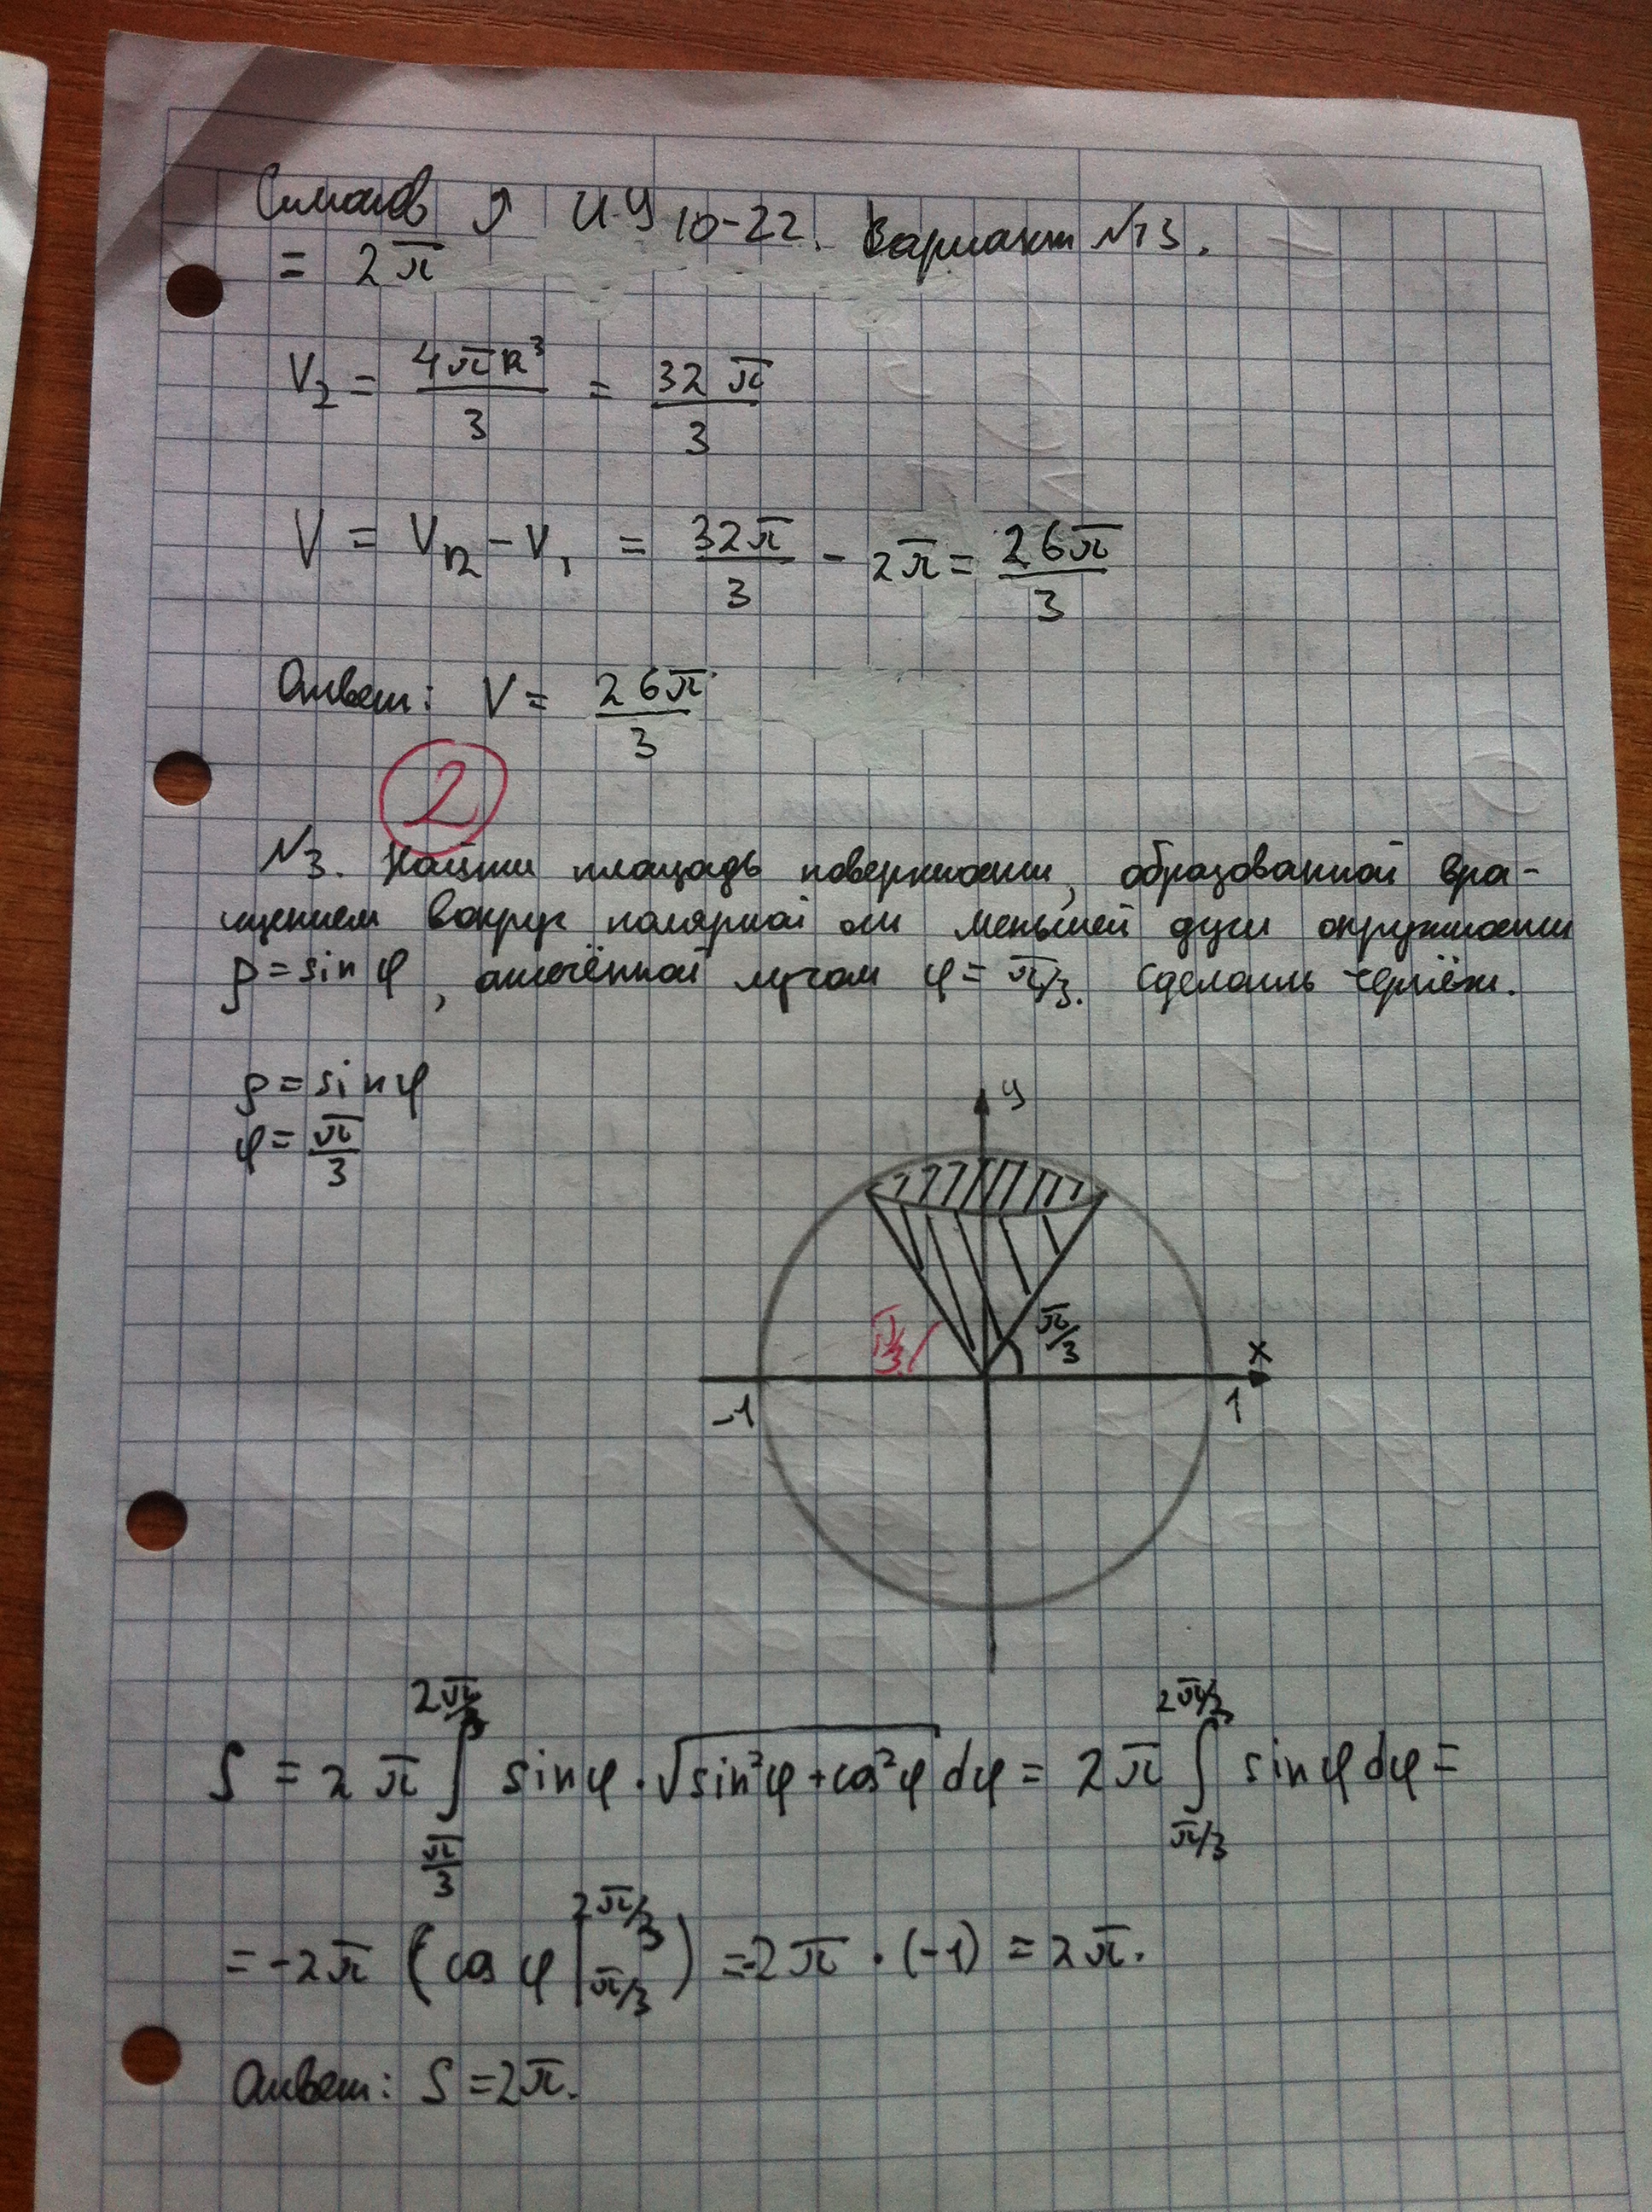 Симонов Я ИУ 10-22. Вариант №13.
= 2π
V₂ = 4πR³/3 = 32π/3
V = V_R - V₁ = 32π/3 - 2π = 26π/3
Ответ: V = 26π/3
2
№3. Найти площадь поверхности, образованной вра-
щением вокруг полярной оси меньшей дуги окружности
ρ = sin φ, отсечённой лучом φ = π/3. Сделать чертёж.
ρ = sin φ
φ = π/3
y
π/3
π/3
x
-1
1
S = 2π ∫_{π/3}^{2π/3} sin φ · √(sin²φ + cos²φ) dφ = 2π ∫_{π/3}^{2π/3} sin φ dφ =
= -2π (cos φ |_{π/3}^{2π/3}) = -2π · (-1) = 2π.
Ответ: S = 2π.